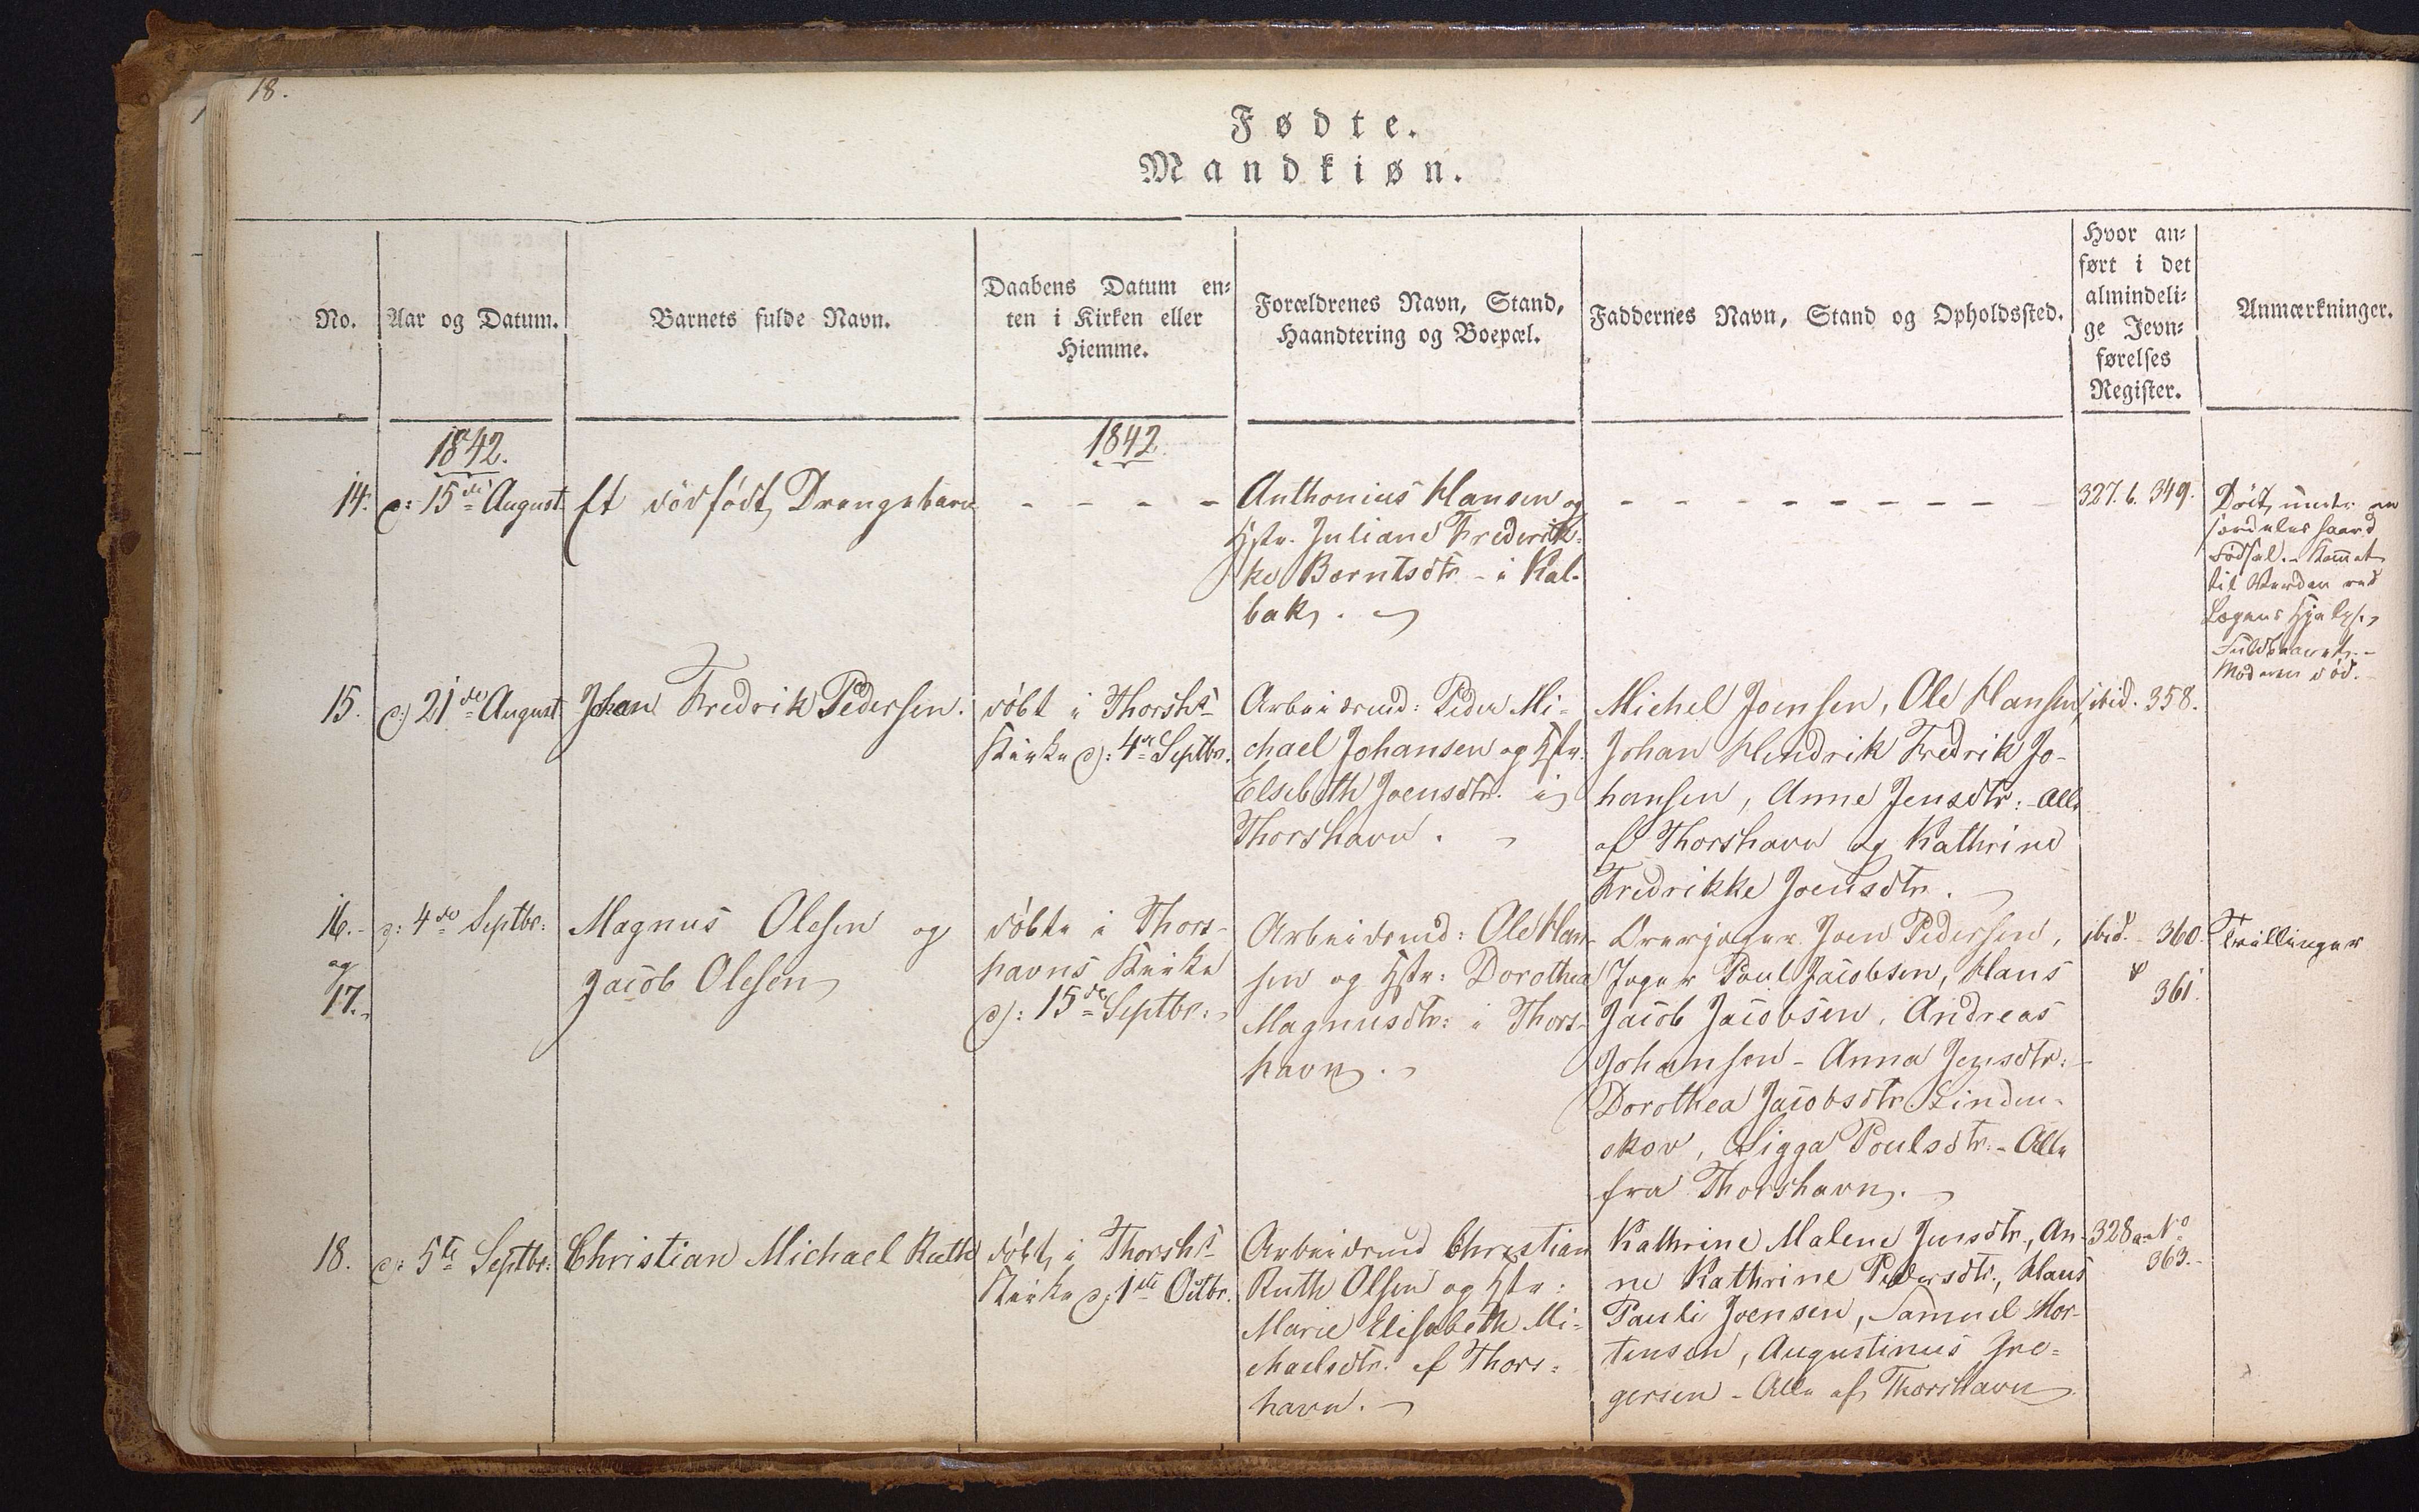 18.
Fødte.
Mandkiøn.
No.
Aar og Datum.
Barnets fulde Navn.
Daabens Datum en=
ten i Kirken eller
Hiemme.
Forældrenes Navn, Stand,
Haandtering og Boepæl.
Faddernes Navn, Stand og Opholdssted.
Hvor an=
ført i det
almindeli=
ge Jevn=
førelses
Register.
Anmærkninger.
1842.
1842
14.
d: 15de August
Et dödfödt Drengebarn
- - - -
Anthonius Hansen og
Hstr. Juliane Frederik=
ke Berntsdtr - i Kal-
bak.
- - - - - - - - -
327. b. 349.
Dödt, under en
særdeles haard
Födsel. - Kommet
til Verden ved
Lægens Hjelp.,
Fuldbaaret. -
Moderen död.
15.
d: 21de August
Johan Fredrik Pedersen.
döbt i Thorshs
Kirke d: 4de Septbr.
Arbeidsmd: Peder Mi-
chael Johansen og Hstr.
Elsebeth Joensdtr. i
Thorshavn.
Michel Joensen, Ole Hansen,
Johan Hendrik Fredrik Jo-
hansen, Anne Jensdtr: - Alle
af Thorshavn og Kathrine
Fredrikke Joensdtr.
ibid. 358.
16. -
og
17. -
d: 4de Septbr:
Magnus Olesen og
Jacob Olesen
döbte i Thors-
havns Kirke
d: 15de Septbr:
Arbeidsmd: Ole Han-
sen og Hstr: Dorothea
Magnusdtr: i Thors-
havn.
Overjæger Joen Pedersen,
Jæger Poul Jacobsen, Hans
Jacob Jacobsen, Andreas
Johansen - Anna Jensdtr: -
Dorothea Jacobsdtr. Linden-
skov, Sigga Poulsdtr. - Alle
fra Thorshavn.
ibid. 360.
361.
Tvillinger
18.
d: 5te Septbr:
Christian Michael Ruth
döbt i Thorshs
Kirke d: 1ste Octbr.
Arbeidsmd Christian
Ruth Olsen og Hstr:
Marie Elisabeth Mi-
chaelsdtr. af Thors=
havn. -
Kathrine Malene Jensdtr., An-
ne Kathrine Pedersdtr., Hans
Pauli Joensen, Samuel Mor-
tensen, Augustinus Gre=
gersen - Alle af Thorshavn
328a No
363. -